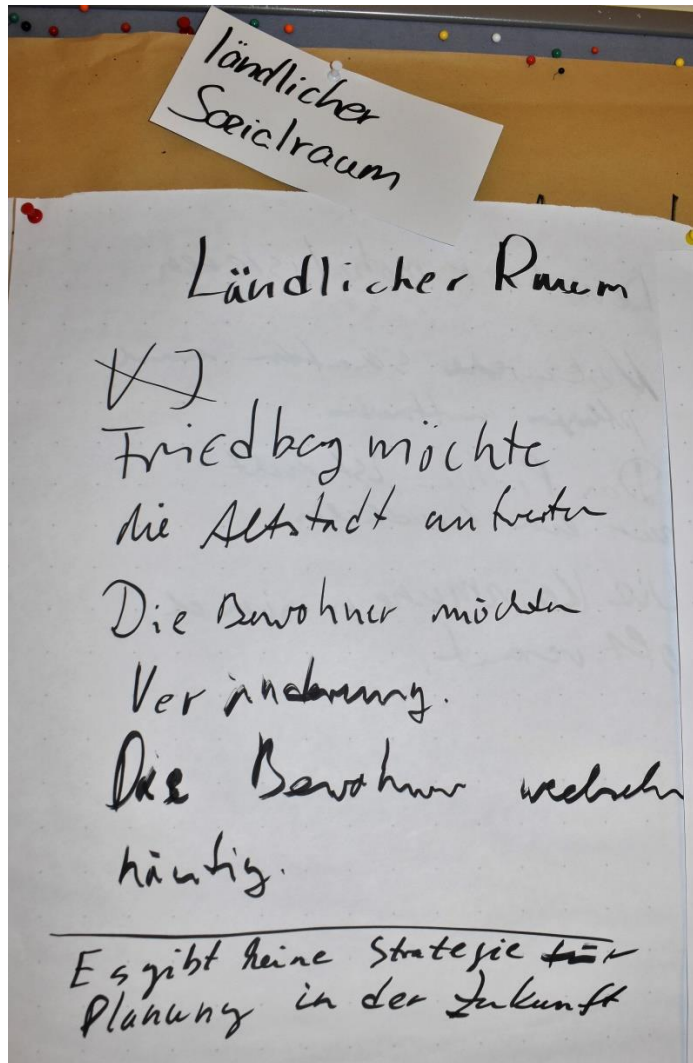 ländlicher
Sozialraum
Ländlicher Raum
Friedberg möchte
die Altstadt
Die Bewohner möchten
Veränderung.
Die Bewohner wechseln
häufig.
Es gibt keine Strategie für
Planung in der Zukunft